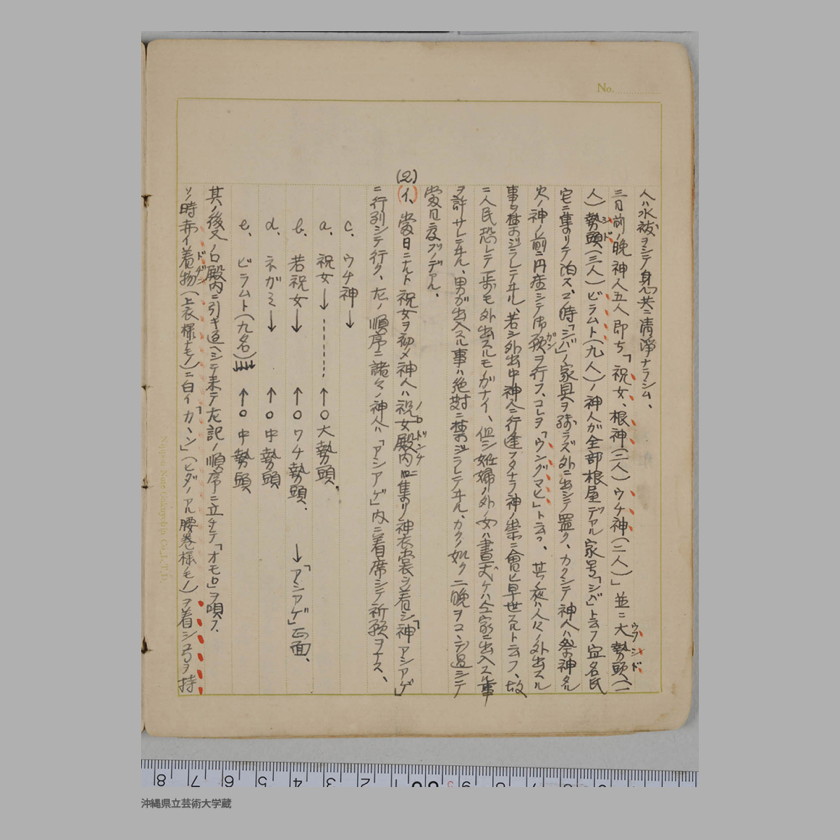 No.
人ハ水祓ヲシテ身心共ニ清淨ナラシム、
三日前ノ晩神人五人即チ「祝女、根神(二人)ウチ神(二人)」並ニ大勢頭(一
ウフシド
人)勢頭(三人)ビラムト(九人)ノ神人が全部根屋デアル家号「ジバ」ト云フ宜名氏
シド
宅ニ集マリテ泊ス、此ノ時「ジバ」ノ家具ヲ残ラズ外ニ出シテ置ク、カクシテ神人ハ祭神タル
火ノ神ノ前ニ円座シテ御願ヲ行フ、コレヲ「ウングマヒ」ト云フ、其ノ夜ハ人々ノ外出スル
グン
事ヲ禁ジラレテヰル、若シ外出中神人ニ行逢フタナラ神ノ祟ニ會ヒ早世スルト云フ、故
ニ人民恐レテ一歩モ外出スルモノガナイ、但シ妊婦ノ外ノ女ハ晝丈ケハ仝家ニ出入スル事
ヲ許サレテヰル、男ガ出入スル事ハ絶対ニ禁ジラレテヰル、カクノ如ク二晩ヲコヽデ過シテ
當日ヲ待ツノデアル、
(2)
(イ、當日ニナルト祝女ヲ初メ神人ハ祝女殿内ニ集マリ神衣裳ヲ着シ「神アシアゲ」
ノロドンチ
ニ行列シテ行ク、左ノ順序ニ諸々ノ神人ハ「アシアゲ」内ニ着席シテ祈願ヲナス、
c、ウチ神→
a、祝女→……←○大勢頭、
b、若祝女→ ←○ワチ勢頭、 →「アシアゲ」正面、
d、ネガミ→ ←○中勢頭
e、ビラムト(九名) ←○中勢頭
其ノ後ヘノロ殿内ニ引キ返シテ来テ左記ノ順序ニ立チテ「オモロ」ヲ唄フ、
ソノ時赤イ着物(上衣様モノ)ニ白イ「カヽン」(ヒダノアル腰巻様モノ)ヲ着シ弓ヲ持
ドギン
沖縄県立芸術大学蔵
8 7 6 5 4 3 2 1 9 8 7 6 5 4 3 2